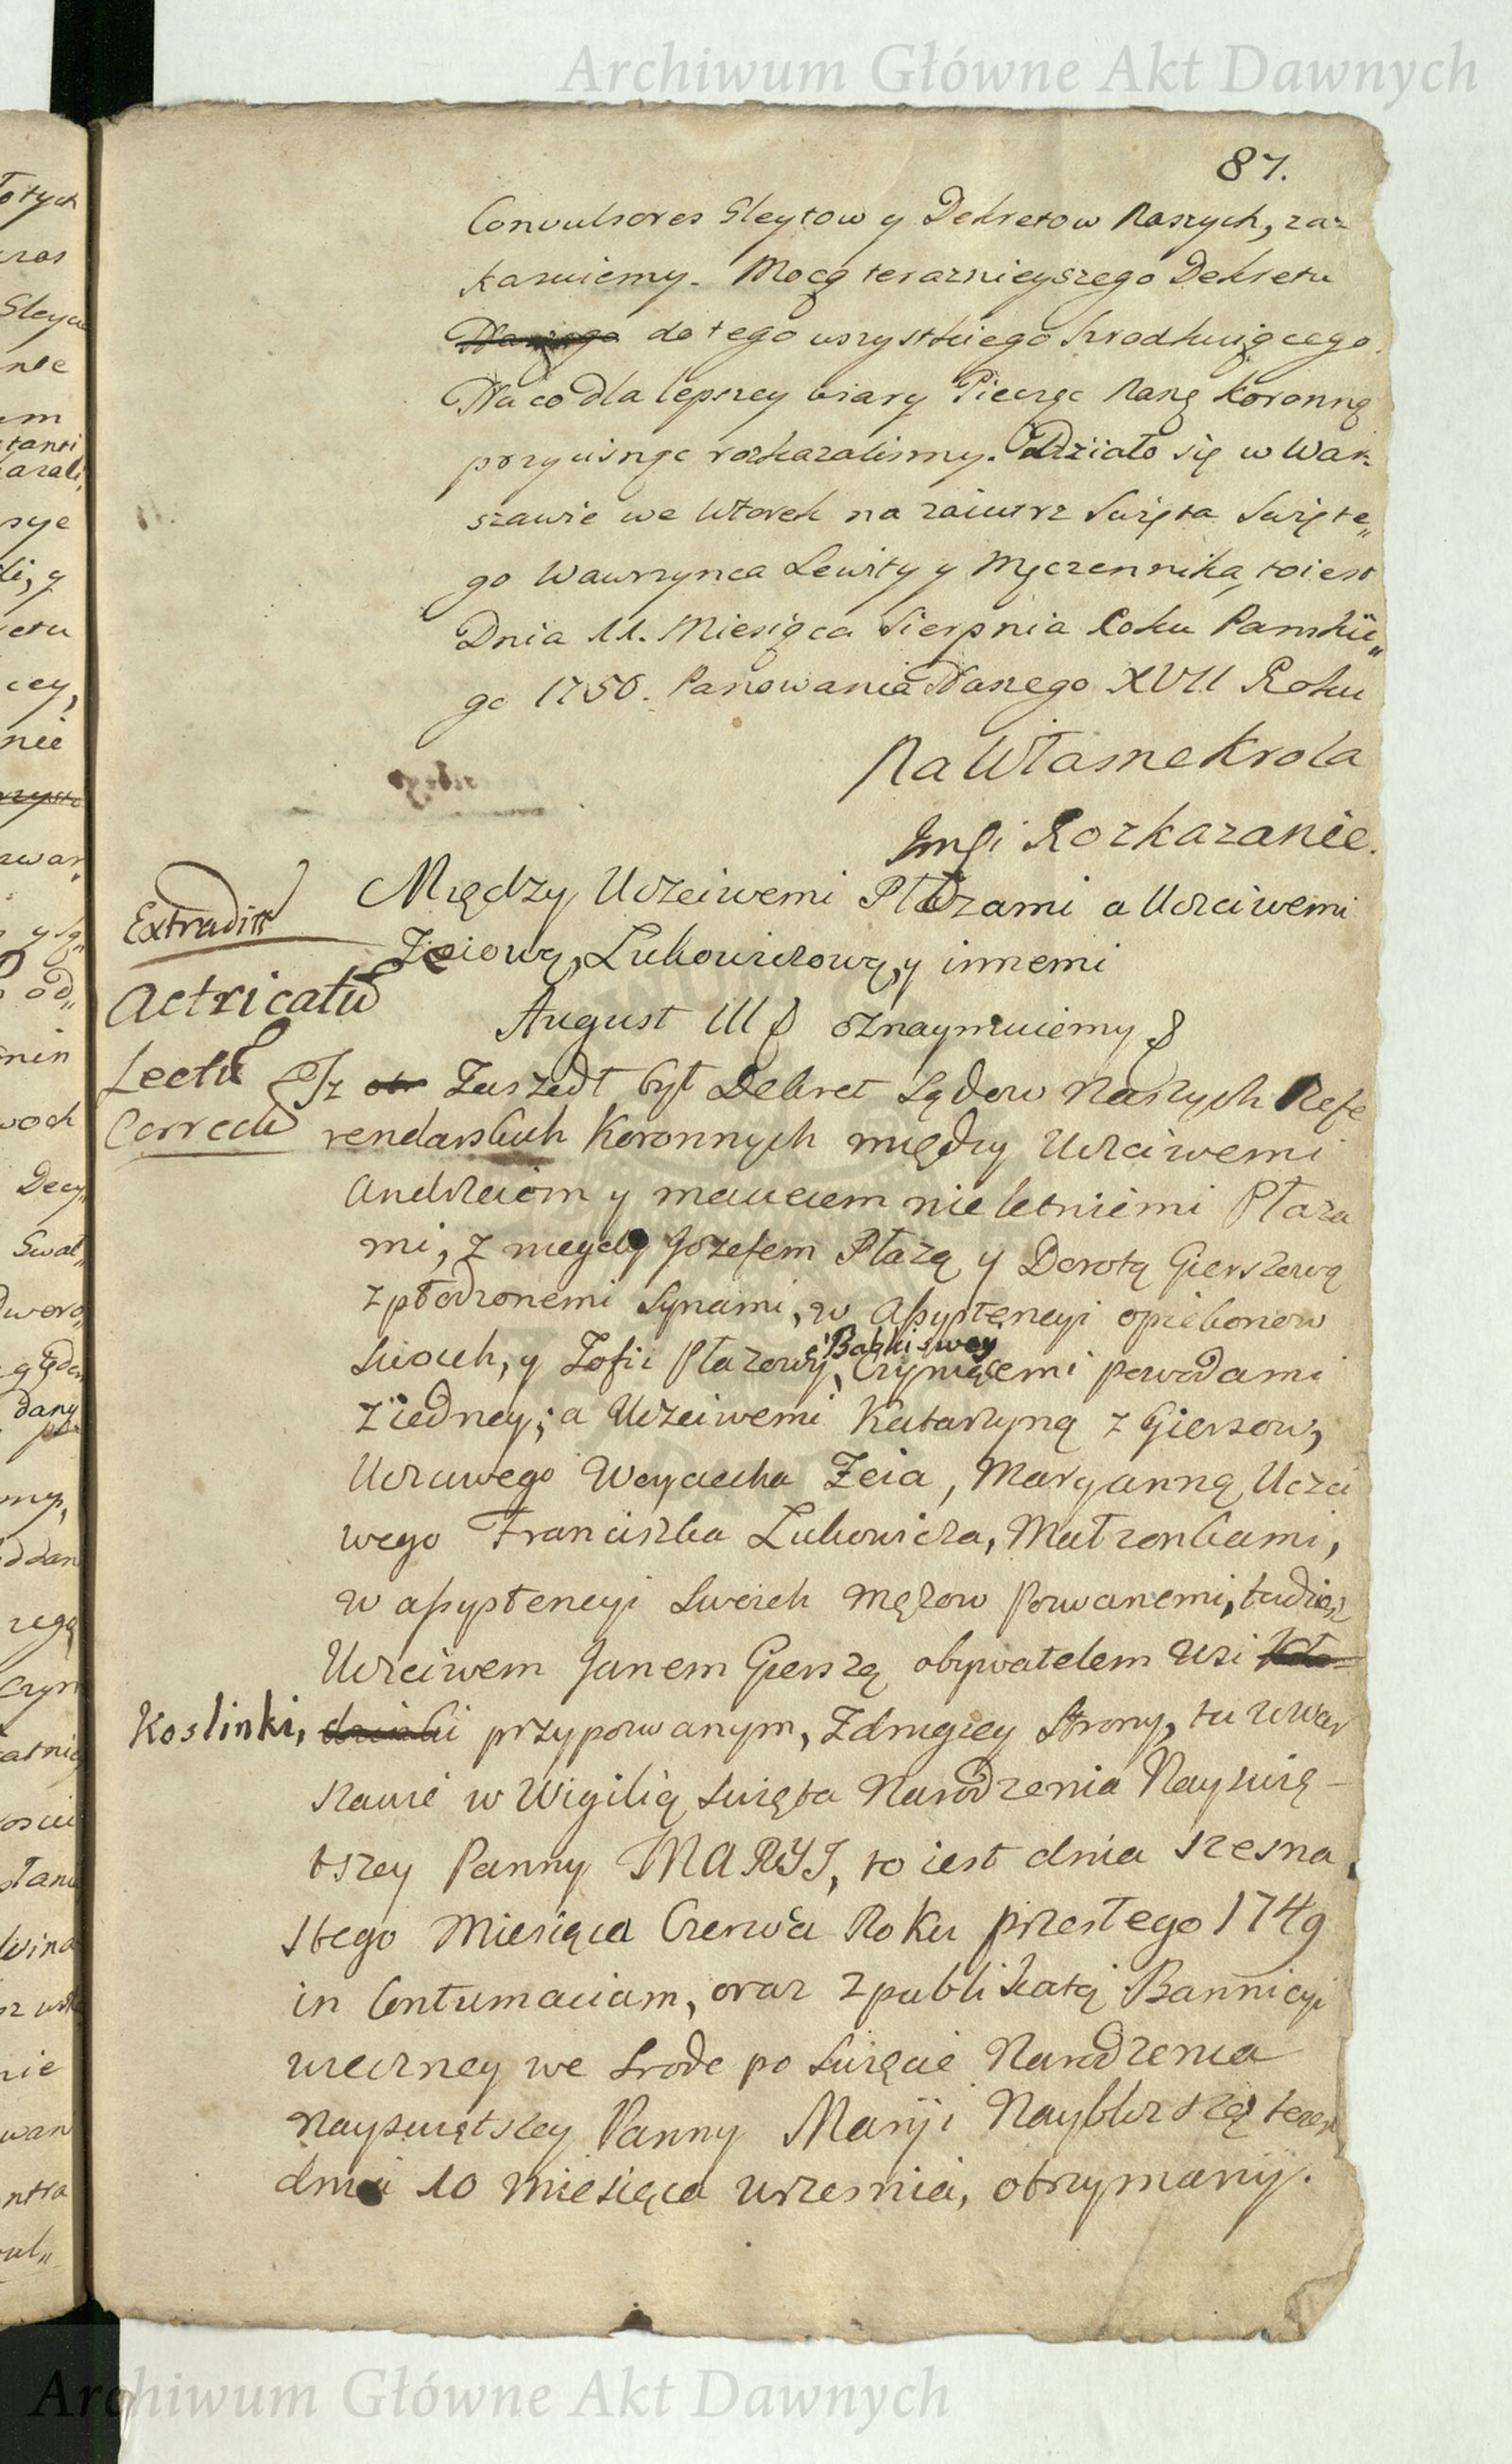 Archiwum Główne Akt Dawnych
87.
Convulsores Gleytow y Dekretow Naszych, za-
kazuiemy. Mocą teraznieyszego Dekretu
do tego wszystkiego srodkuiącego.
Na co dla lepszey wiary Pieczęc naszą Koronną
przycisnąc rozkazalismy. Działo się w War-
szawie we Wtorek na zaiutrz Swięta Swięte„
go Wawrzynca Lewity y Męczennika, toiest
Dnia 11. Miesiąca Sierpnia Roku Panskie„
go 1750. Panowania Naszego XVII Roku
Na Własne Krola
Jmści Rozkazanie.
Między Uczciwemi Płazami a Uczciwemi
Extradit
Zeiową, Lukowiczową, y innemi
Actricatū
August III oznaymuiemy
Lectū
Iz Zaszedł był Dekret Sądow Naszych Refe
Correctū
rendarskich Koronnych między Uczciwemi
Andrzeiem y Macieiem nieletniemi Płaza
mi, z niegdy Jozefem Płazą y Dorotą Gierszową
zpłodzonemi Synami, w assystencyi opiekonow
Babki swey
swoich, y Zofii Płazowy, Czyniącemi powodami
z iedney; a Uczciwemi Katarzyną z Gierszow,
Uczciwego Woyciecha Zeia, Maryanną Uczci
wego Franciszka Lukowicza, Małzonkami,
w assystencyi swoich mężow Pozwanemi, tudiesz
Uczciwem Janem Gierszą obywatelem wsi
Koslinki, przypozwanym, z drugiey Strony, tu w War
szawie w Wigilią Swięta Narodzenia Nayswię-
tszey Panny MARYI, to iest dnia szesna
stego Miesiąca Czerwca Roku przesłego 1749
in Contumaciam, oraz z publikatą Bannicyi
wieczney we Srode po Swięcie Narodzenia
Nayswiętszey Panny Maryi
dnia 10 miesiąca wrzesnia, otrzymany.
Archiwum Główne Akt Dawnych